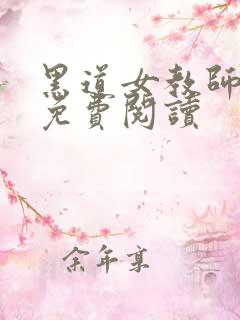 黑道女教師
免費閱讀
余年京